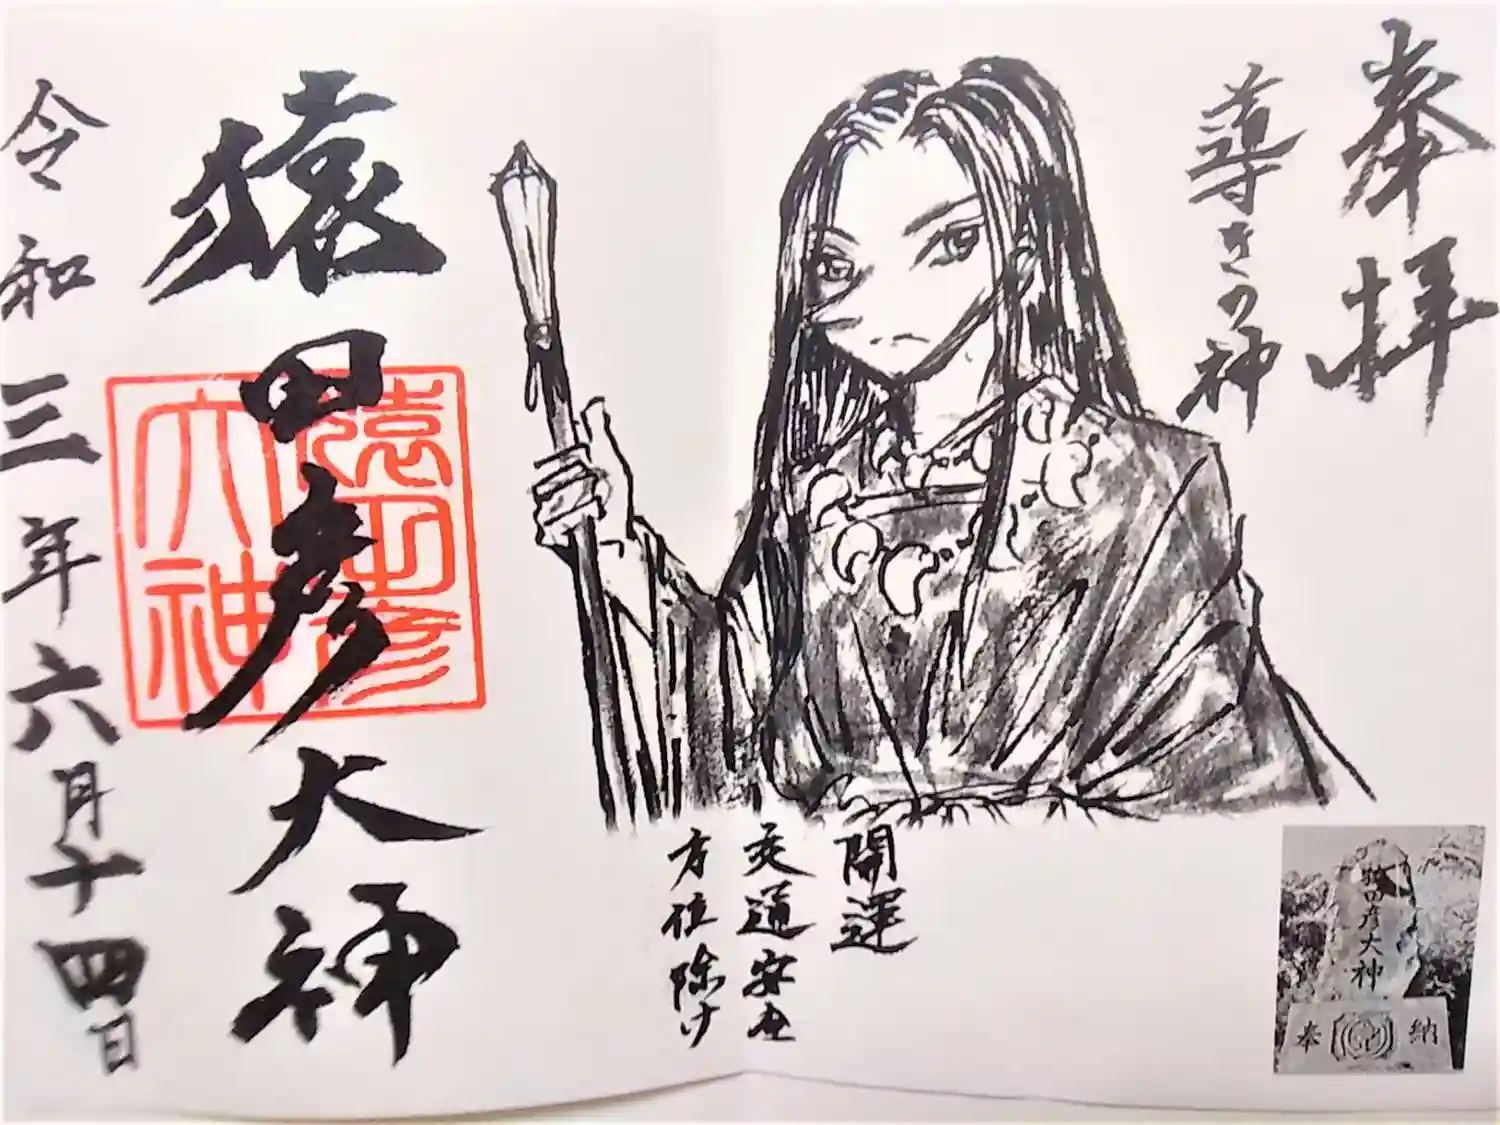 奉拝
導きの神
開運
交通安全
方位除け
猿田彦大神
猿田彦
大神
令和三年六月十四日
猿田彦大神
奉納